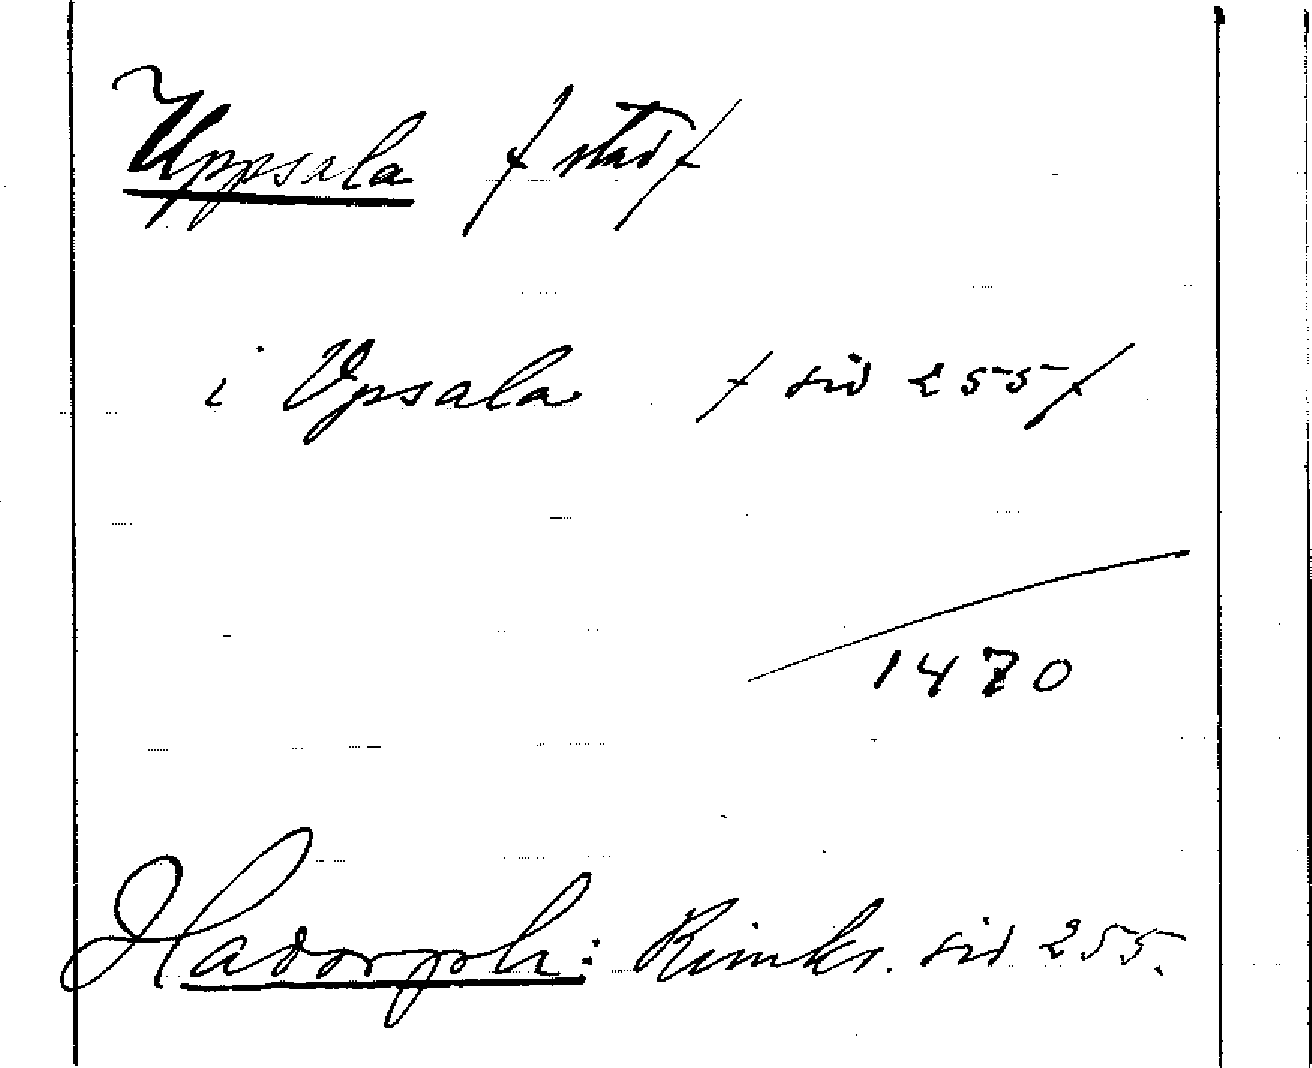 Uppsala /: stad :/
i Vpsala /: sid 255 :/
1470
Hadorph: Rimkr. sid 255.